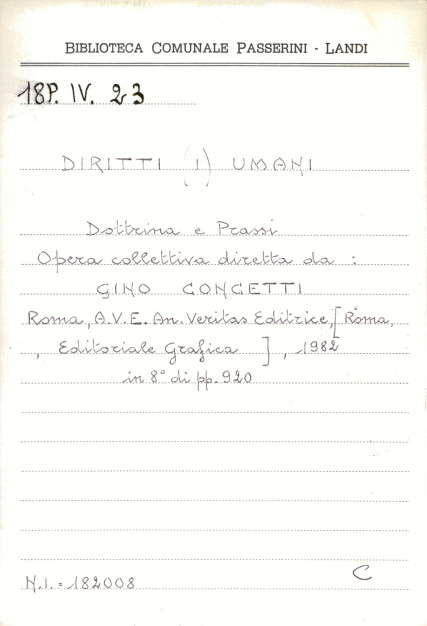 BIBLIOTECA COMUNALE PASSERINI - LANDI
18P. IV. 23
DIRITTI (I) UMANI
Dottrina e Prassi
Opera collettiva diretta da :
GINO CONCETTI
Roma, A.V.E. An. Veritas Editrice, [Roma,
, Editoriale Grafica ] , 1982
in 8° di pp. 920
N.I. = 182008
C